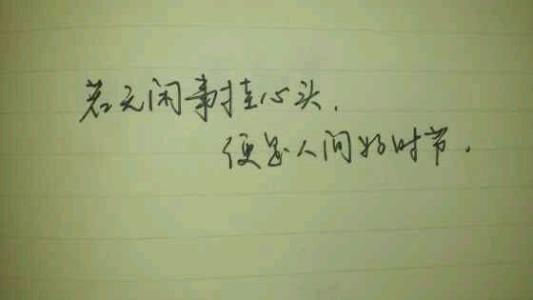 若无闲事挂心头，
便是人间好时节。